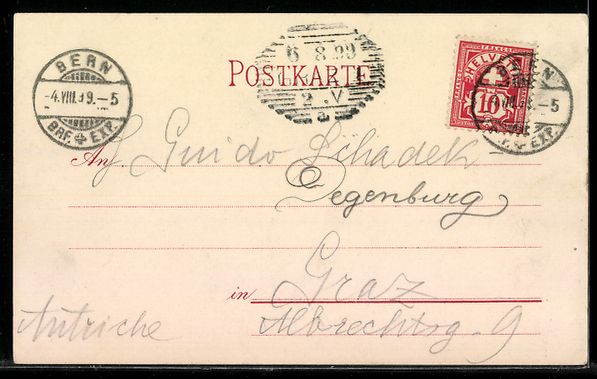 BERN
-4.VIII.99.-5
BRF. EXP.
6 8.99
2 .V
a
POSTKARTE
FRANCO
HELVETIA
10
BERN
VIII.99.-5
EXP.
An H Guido Schadek
Degenburg
in Graz
Albrechtsg. 9
Autriche